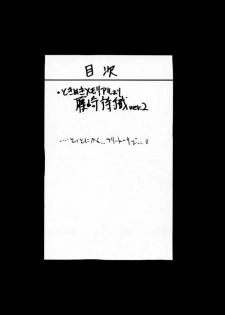 目次
・ときめきメモリアルより
藤崎詩織 ver.2
....とっとにかく..フリートークで...。